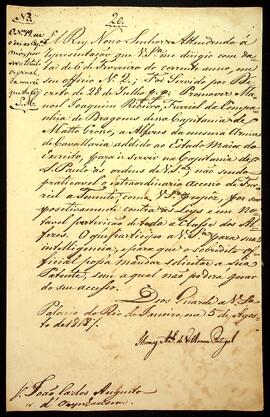 N3.
20.
El Rey Nosso Senhor Attendendo á
representação que V.Sa. me dirigio com da-
ta de 6 de Fevereiro do corrente anno, no
seu officio No. 2; Foi Servido por De-
creto de 28 de Julho p.p. Promover Ma-
noel Joaquim Ribeiro, Furriel da Compa-
nhia de Dragoens da Capitania de
Matto Grosso, a Alferes da mesma Arma
de Cavallaria addido ao Estado Maior do
Exercito, para ir servir na Capitania de
S. Paulo ás ordens de V.Sa.; não sendo
praticavel o extraordinario accesso de Fur-
riel a Tenente, como V.Sa. propoz, por ser
positivamente contra as Leys e em No-
tavel prejuizo de toda a Classe dos Alfe-
res. O que participo a V.Sa. para sua
intelligencia, e para que o sobredito Of-
ficial possa mandar solicitar a sua
Patente, sem a qual não poderá gozar
do seu accesso.
Deos Guarde a V.Sa.
Palacio do Rio de Janeiro em 5 de Agos-
to de 1817.
Thomaz Anto. de Villanova Portugal
Sr. João Carlos Augusto
d'Oeynhausen